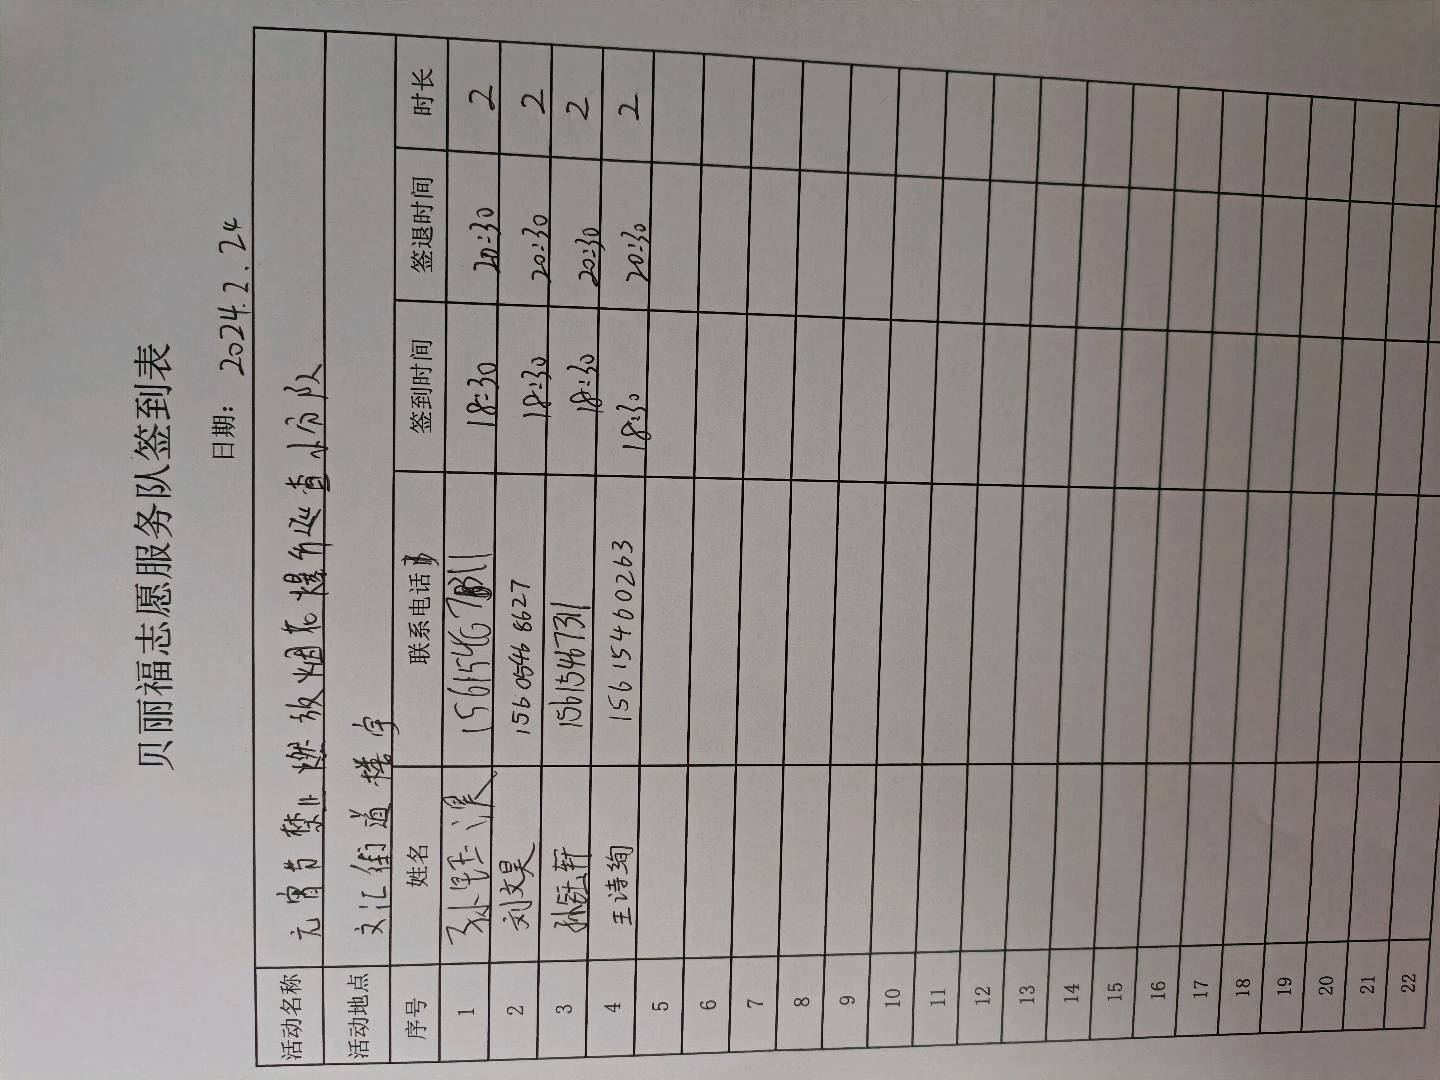 贝丽福志愿服务队签到表
日期: 2024.2.24
活动名称 元宵节禁止燃放烟花爆竹巡查小分队
活动地点 文汇街道 楼宇
序号 姓名 联系电话 签到时间 签退时间 时长
1 18:30 20:30 2
2 刘文昊 15605468627 18:30 20:30 2
3 孙钰轩 1561546731 18:30 20:30 2
4 王诗绚 15615460263 18:30 20:30 2
5
6
7
8
9
10
11
12
13
14
15
16
17
18
19
20
21
22